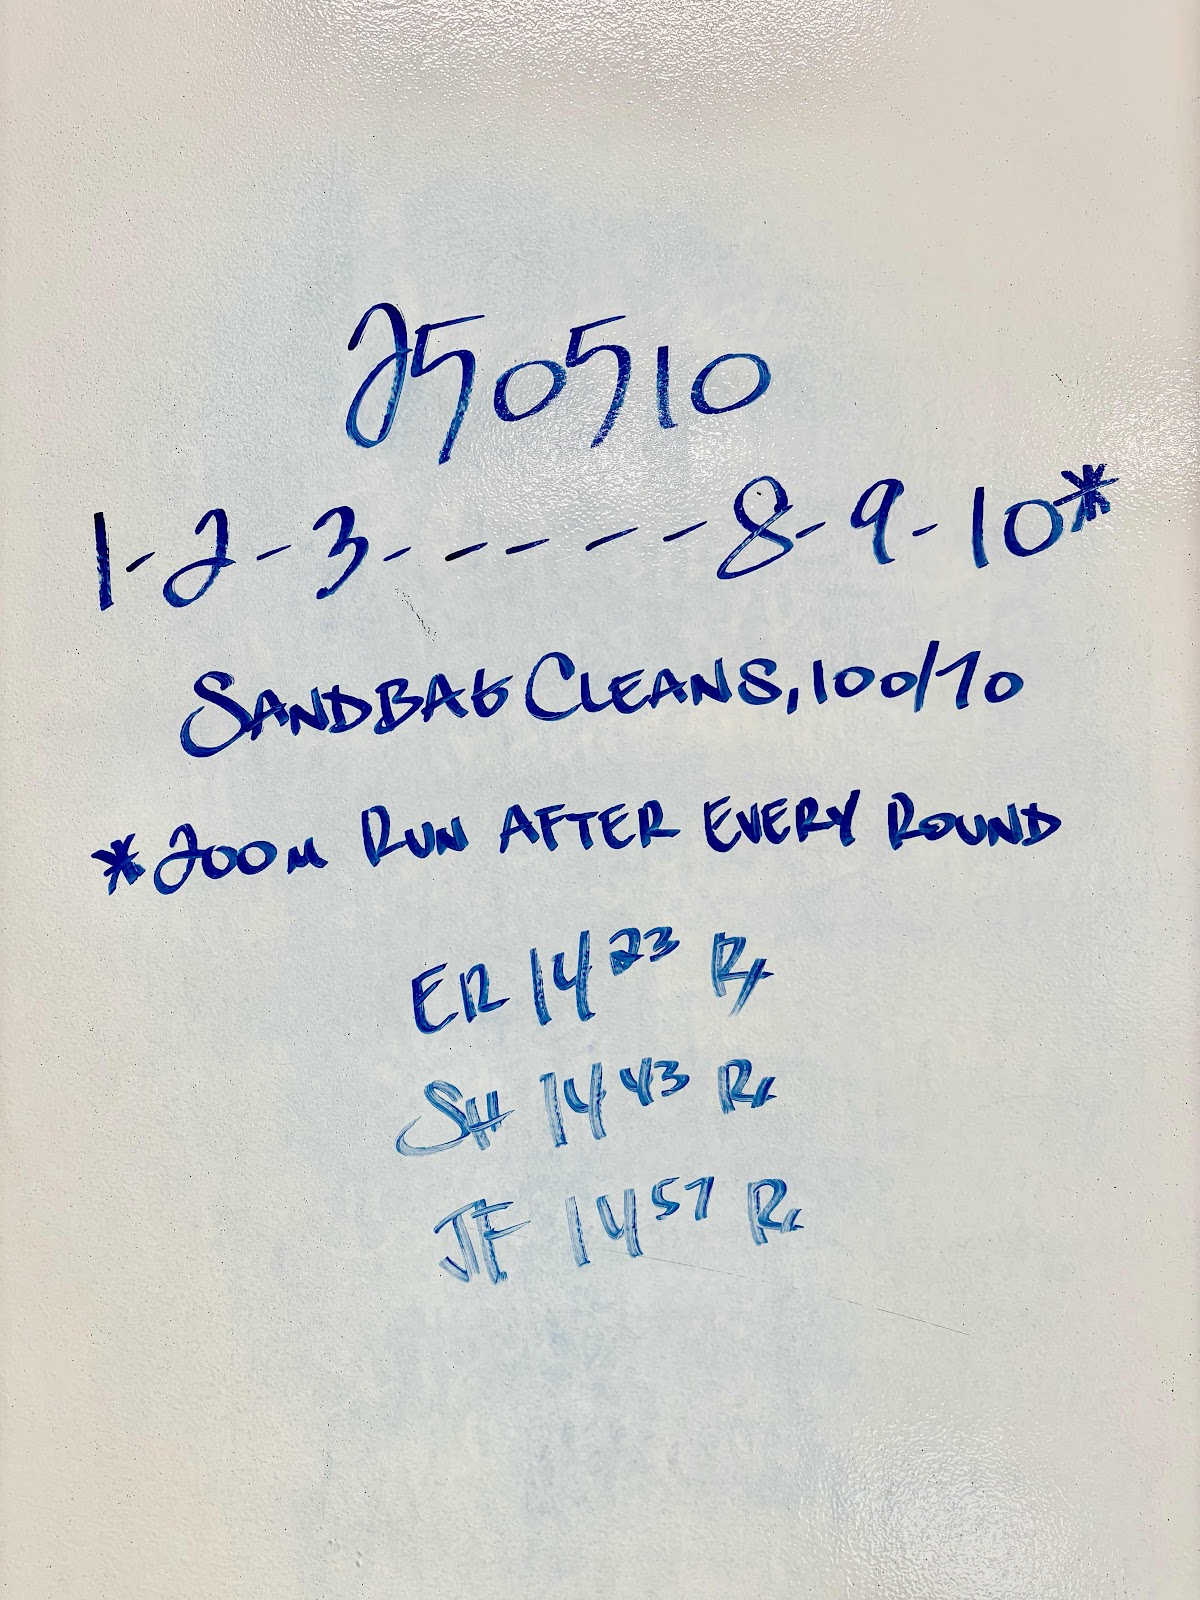 250510
1-2-3------8-9-10*
SANDBAG CLEANS, 100/70
*200M RUN AFTER EVERY ROUND
ER 14 23 Rx
SH 14 43 Rx
JF 14 57 Rx